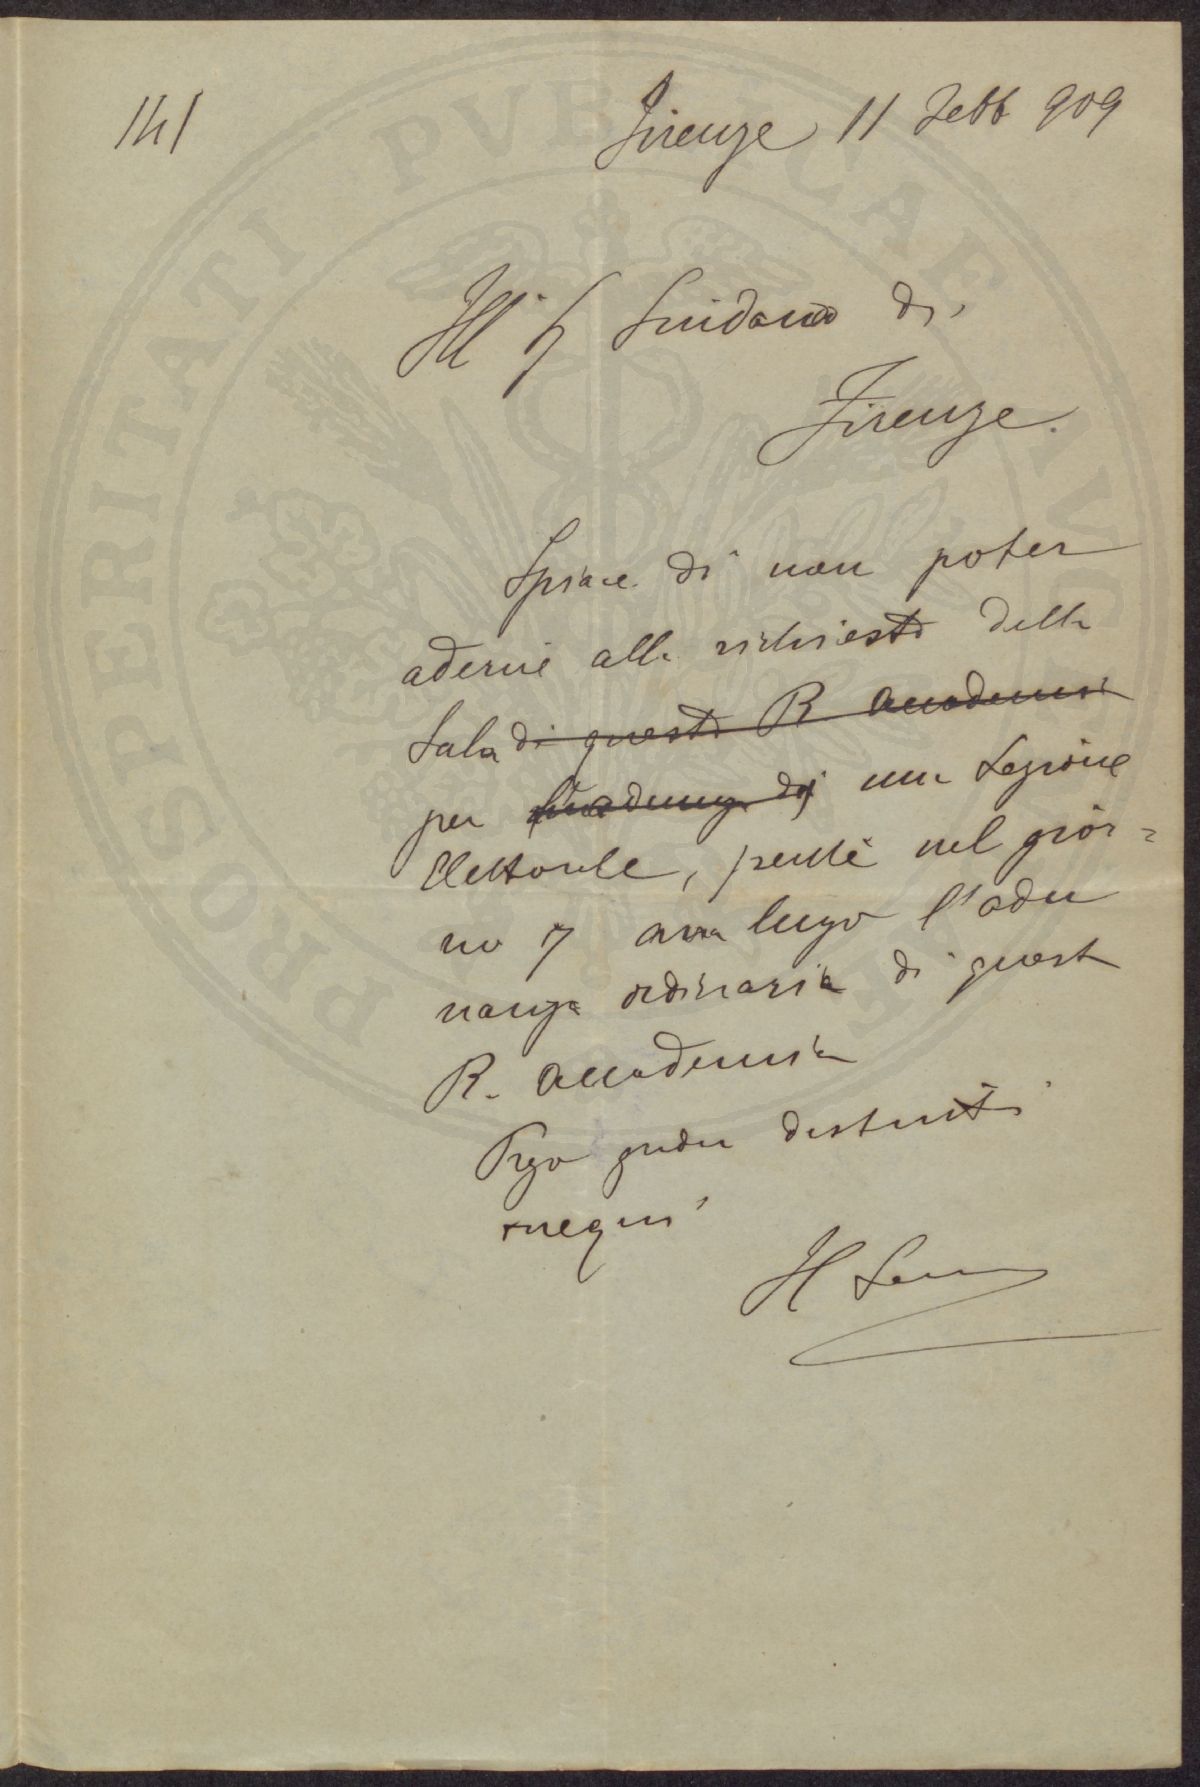 141
Firenze 11 Febb 909
Ill Sg Sindaco di
Firenze.
Spiace di non poter
aderire alla richiesta della
Sala di questa R Accademia
per l'adunanza di una Sezione
Elettorale, perchè nel gior=
no 7 avrà luogo l'adu
nanza ordinaria di questa
R. Accademia
Prego gradire distinti
ossequi
Il
PROSPERITATI PVBLICAE AVGENDAE